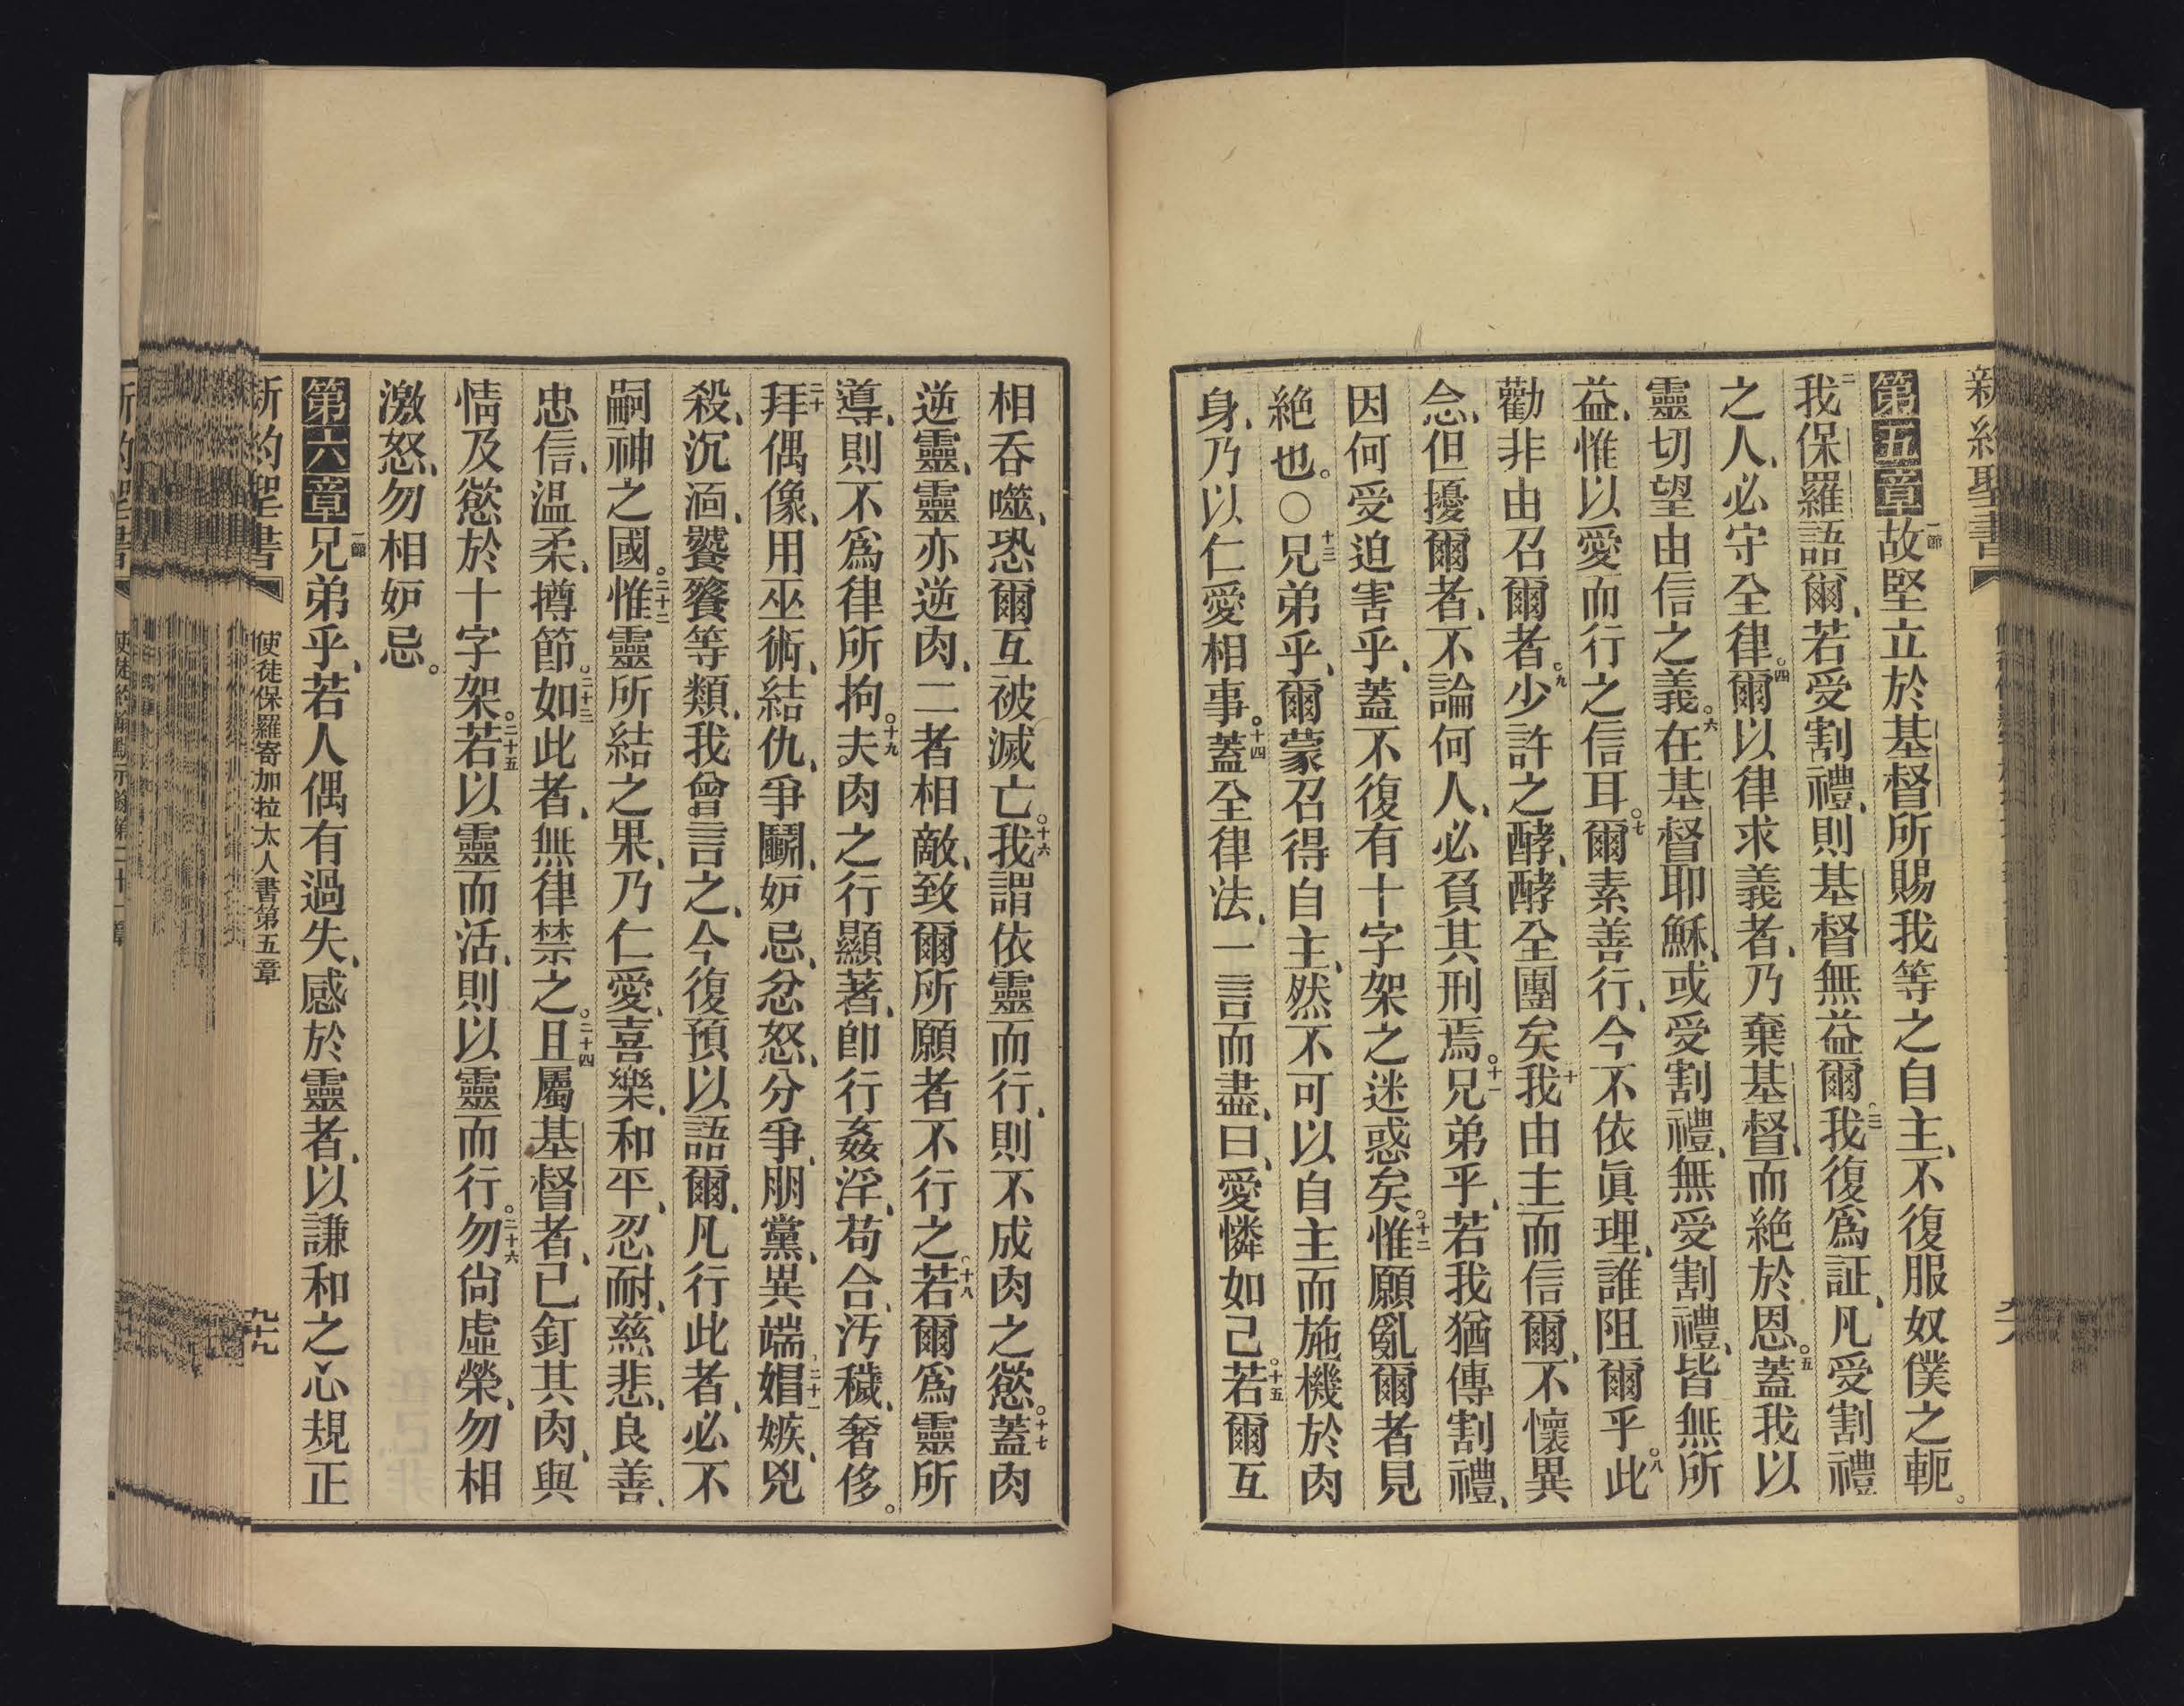 新約聖書
第五章一節故堅立於基督所賜我等之自主、不復服奴僕之軛。
二我保羅語爾、若受割禮、則基督無益爾。三我復爲証、凡受割禮
之人、必守全律。四爾以律求義者、乃棄基督、而絕於恩。五蓋我以
靈切望由信之義。六在基督耶穌、或受割禮、無受割禮、皆無所
益、惟以愛而行之信耳。七爾素善行、今不依眞理、誰阻爾乎。八此
勸非由召爾者。九少許之酵、酵全團矣十我由主而信爾、不懷異
念、但擾爾者、不論何人、必負其刑焉。十一兄弟乎、若我猶傳割禮、
因何受迫害乎、蓋不復有十字架之迷惑矣。十二惟願亂爾者見
絕也。○十三兄弟乎、爾蒙召得自主、然不可以自主而施機於肉
身、乃以仁愛相事。十四蓋全律法、一言而盡、曰、愛憐如己。十五若爾互
相吞噬、恐爾互被滅亡。十六我謂依靈而行、則不成肉之慾。十七蓋肉
逆靈、靈亦逆肉、二者相敵、致爾所願者不行之。十八若爾爲靈所
導、則不爲律所拘。十九夫肉之行顯著、卽行姦淫、苟合、汚穢、奢侈。
二十拜偶像、用巫術、結仇、爭鬭、妒忌、忿怒、分爭、朋黨、異端、二十一媢嫉、兇
殺、沉湎、饕餮等類、我曾言之、今復預以語爾、凡行此者、必不
嗣神之國。二十二惟靈所結之果、乃仁愛、喜樂、和平、忍耐、慈悲、良善、
忠信、温柔、撙節。二十三如此者、無律禁之。二十四且屬基督者、已釘其肉、與
情及慾於十字架。二十五若以靈而活、則以靈而行。二十六勿尙虛榮、勿相
激怒、勿相妒忌。
第六章一節兄弟乎、若人偶有過失、感於靈者、以謙和之心規正
新約聖書 使徒保羅寄加拉太人書第五章 九十九